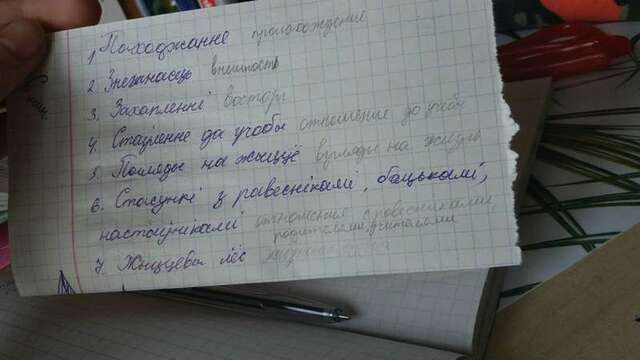 1. Паходжанне происхождение
2. Знешнасць внешность
3. Захапленні восторг
4. Стаўленне да вучобы отношение до учобы
5. Погляды на жыццё взгляды на жизнь
6. Стасункі з равеснікамі, бацькамі,
настаўнікамі отношения с ровесниками,
родителями, учителями
7. Жыццёвы лёс